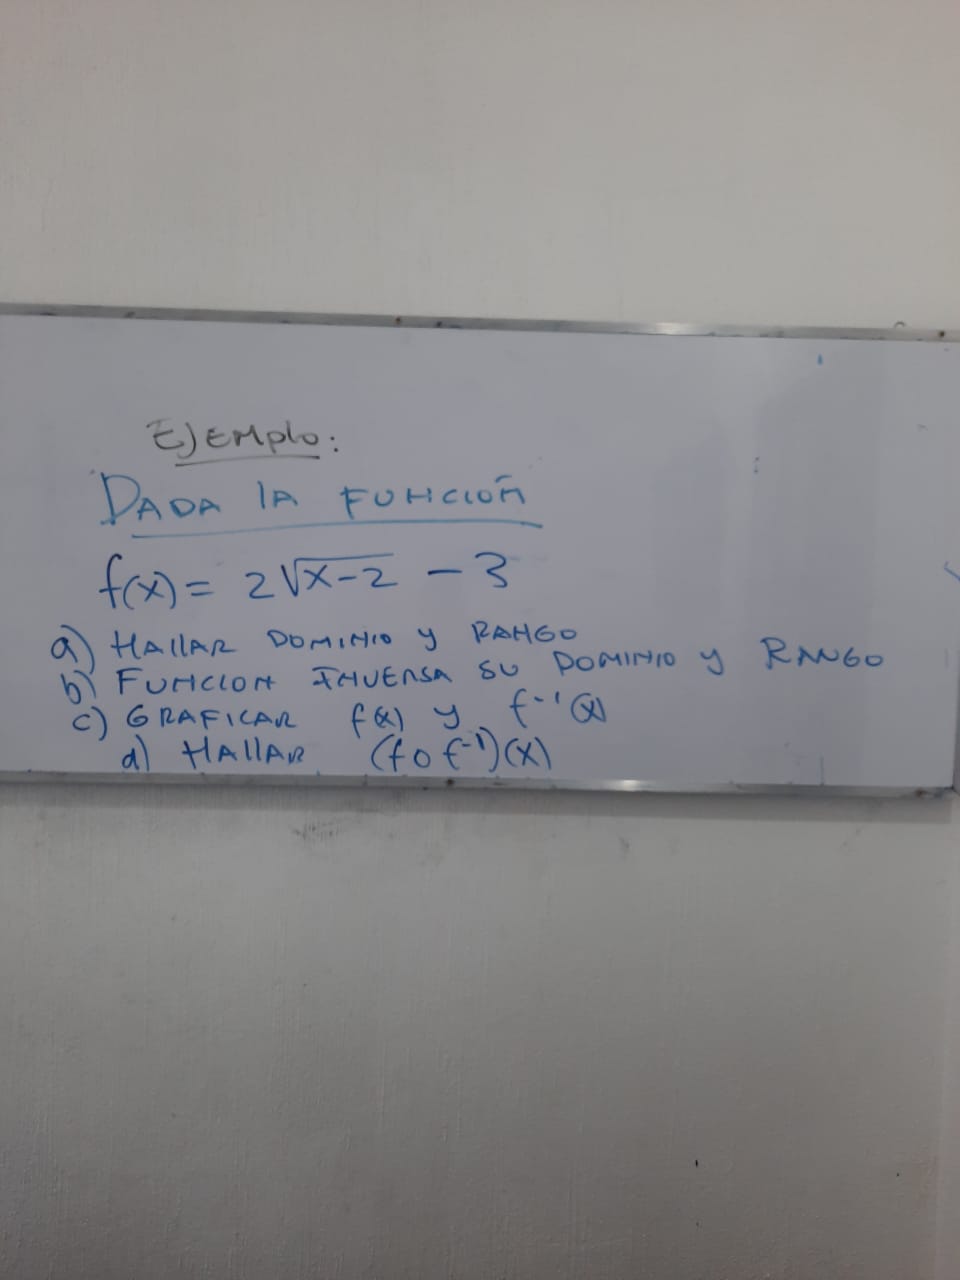 EJEMPlo:
DADA lA FUNCIÓN
f(x) = 2√x-2 - 3
a) HAllAR DOMINIO y RANGO
b) FUNCION INVERSA SU DOMINIO y RANGO
c) GRAFICAR f(x) y f⁻¹(x)
d) HAllAR (f o f⁻¹)(x)